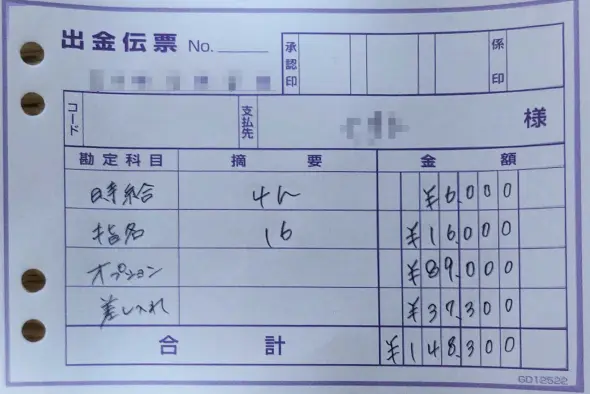 出金伝票 No.
承認印 係印
コード 支払先 様
勘定科目 摘要 金額
時給 4h ¥6.000
指名 16 ¥16.000
オプション ¥89.000
差し入れ ¥37.300
合計 ¥148.300
GD12522